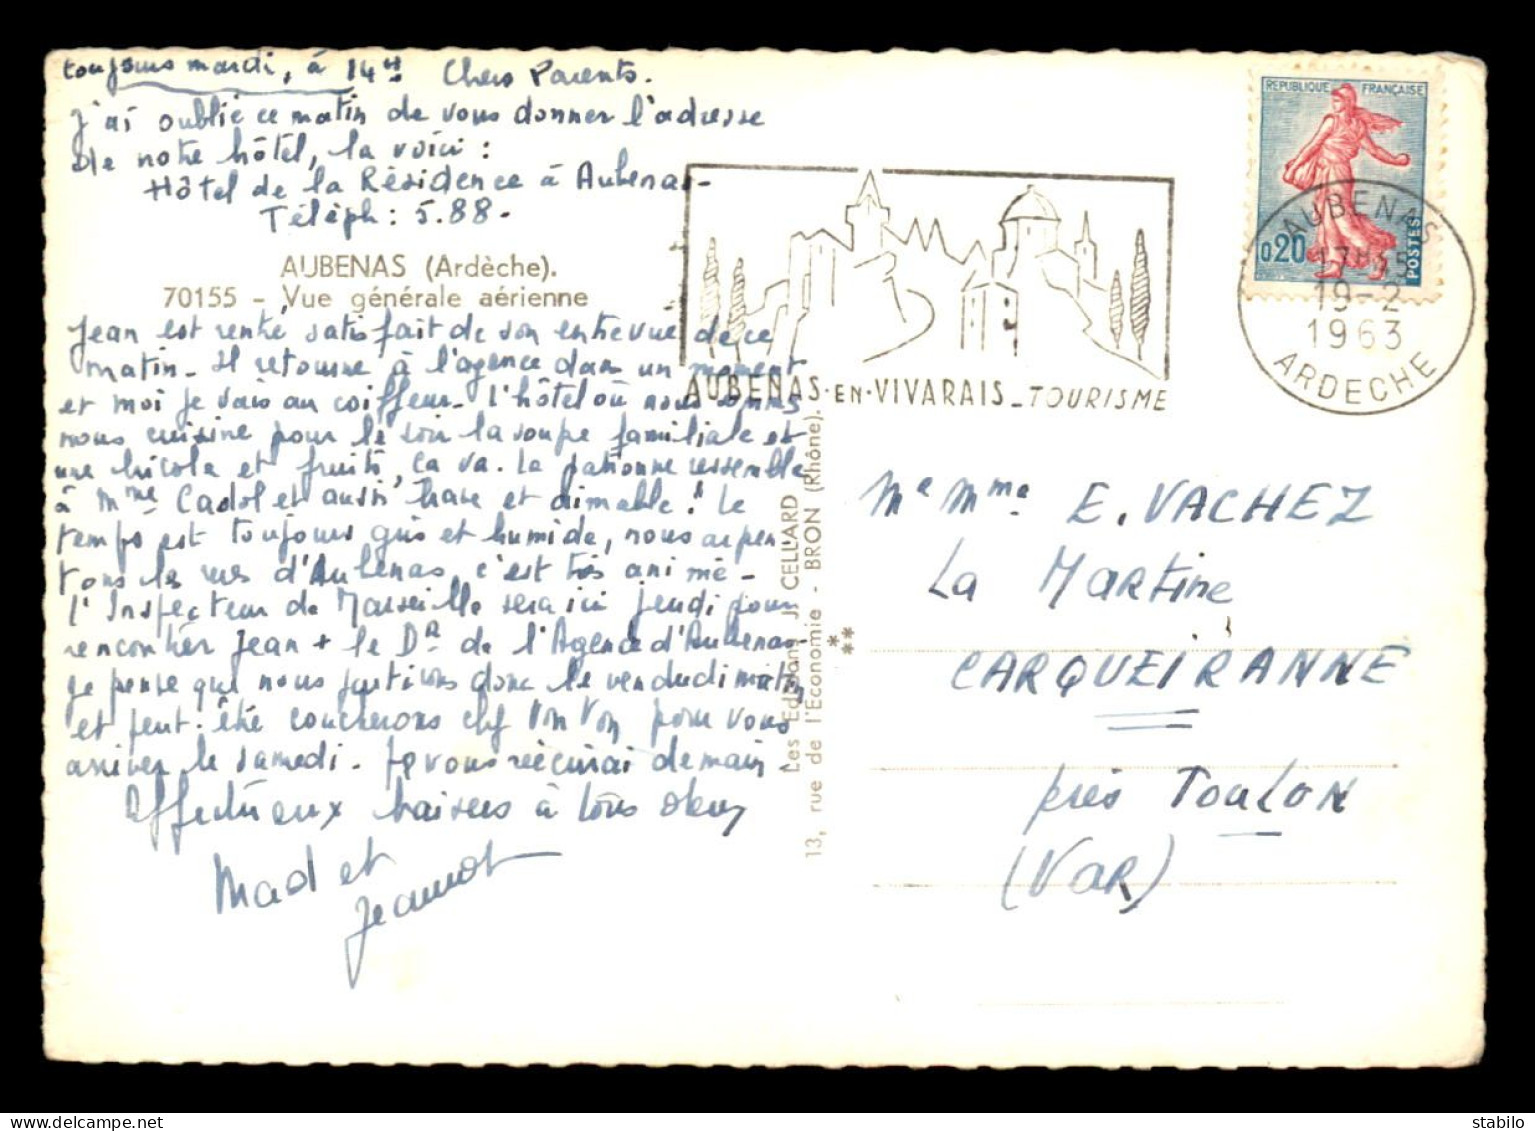 toujours mardi, à 14H Chers Parents.
J'ai oublié ce matin de vous donner l'adresse
de notre hôtel, la voici :
Hôtel de la Résidence à Aubenas-
Téléph : 5.88-
AUBENAS (Ardèche).
70155 - Vue générale aérienne
Jean est rentré satisfait de son entrevue de ce
matin - Il retourne à l'agence dans un moment
et moi je vais au coiffeur - L'hôtel où nous sommes
nous cuisine pour le soir la soupe familiale et
une bricole et fruits, ça va. La patronne ressemble
à Mme Cadol et aussi brave et aimable ! Le
temps est toujours gris et humide, nous arpen
tons les rues d'Aubenas, c'est très animé -
L'Inspecteur de Marseille sera ici jeudi pour
rencontrer Jean + le Dr de l'Agence d'Aubenas-
Je pense que nous partirons donc le vendredi matin
et peut-être coucherons chez Ton Ton pour vous
arriver le samedi - Je vous réécrirai demain -
Affectueux baisers à tous deux
Mad et
Jeannot
Les Editions J. CELLARD
13, rue de l'Economie - BRON (Rhône).
REPUBLIQUE FRANÇAISE
0,20
POSTES
AUBENAS
17H35
19-2
1963
ARDECHE
AUBENAS·EN·VIVARAIS - TOURISME
Mr Mme E. VACHEZ
La Martine
CARQUEIRANNE
près TOULON
(VAR)
delcampe.net
stylobilo